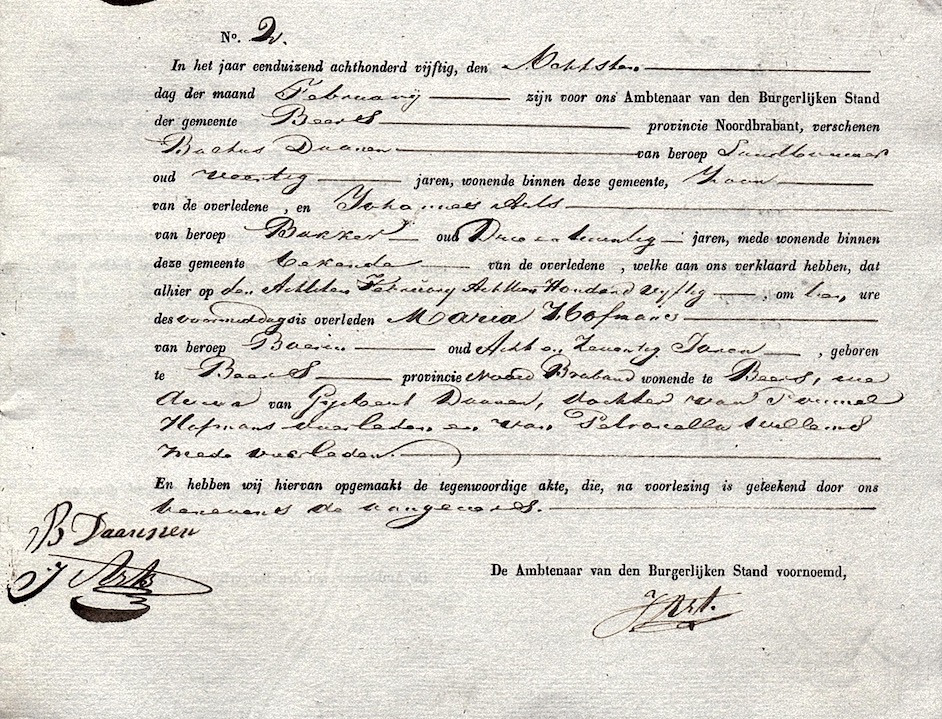 No. 2.
In het jaar eenduizend achthonderd vijftig, den Achtsten
dag der maand Februarij zijn voor ons Ambtenaar van den Burgerlijken Stand
der gemeente Beers provincie Noordbrabant, verschenen
Daanen van beroep Landbouwer
oud veertig jaren, wonende binnen deze gemeente, Zoon
van de overledene , en Johannes Arts
van beroep Bakker oud Drie en twentig jaren, mede wonende binnen
deze gemeente bekende van de overledene , welke aan ons verklaard hebben, dat
alhier op den Achtsten Februarij Achttien Honderd vijftig , om tien ure
des voormiddags is overleden Maria Hofmans
van beroep Boerin oud Acht en Zeventig Jaren , geboren
te Beers provincie Noord Braband wonende te Beers, we
duwe van Gijsbert Daanen, dochter van
Hofmans overleden en van Petronella Willems
mede overleden.
En hebben wij hiervan opgemaakt de tegenwoordige akte, die, na voorlezing is geteekend door ons
benevens de aangevers.
B Daanssen
J Arts
De Ambtenaar van den Burgerlijken Stand voornoemd,